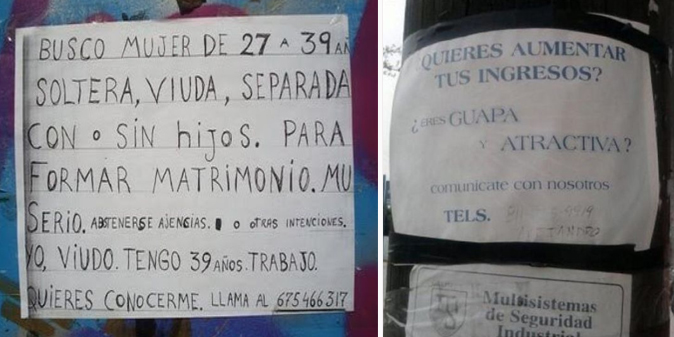 BUSCO MUJER DE 27 A 39 AÑ
SOLTERA, VIUDA, SEPARADA
CON O SIN hijos. PARA
FORMAR MATRIMONIO. MU
SERIO. ABSTENERSE AJENCIAS. O OTRAS INTENCIONES.
YO, VIUDO. TENGO 39 AÑOS. TRABAJO.
QUIERES CONOCERME. LLAMA AL 675466317
QUIERES AUMENTAR
TUS INGRESOS?
¿ERES GUAPA
Y ATRACTIVA?
comunicate con nosotros
TELS.
Multisistemas
de Seguridad
Industrial